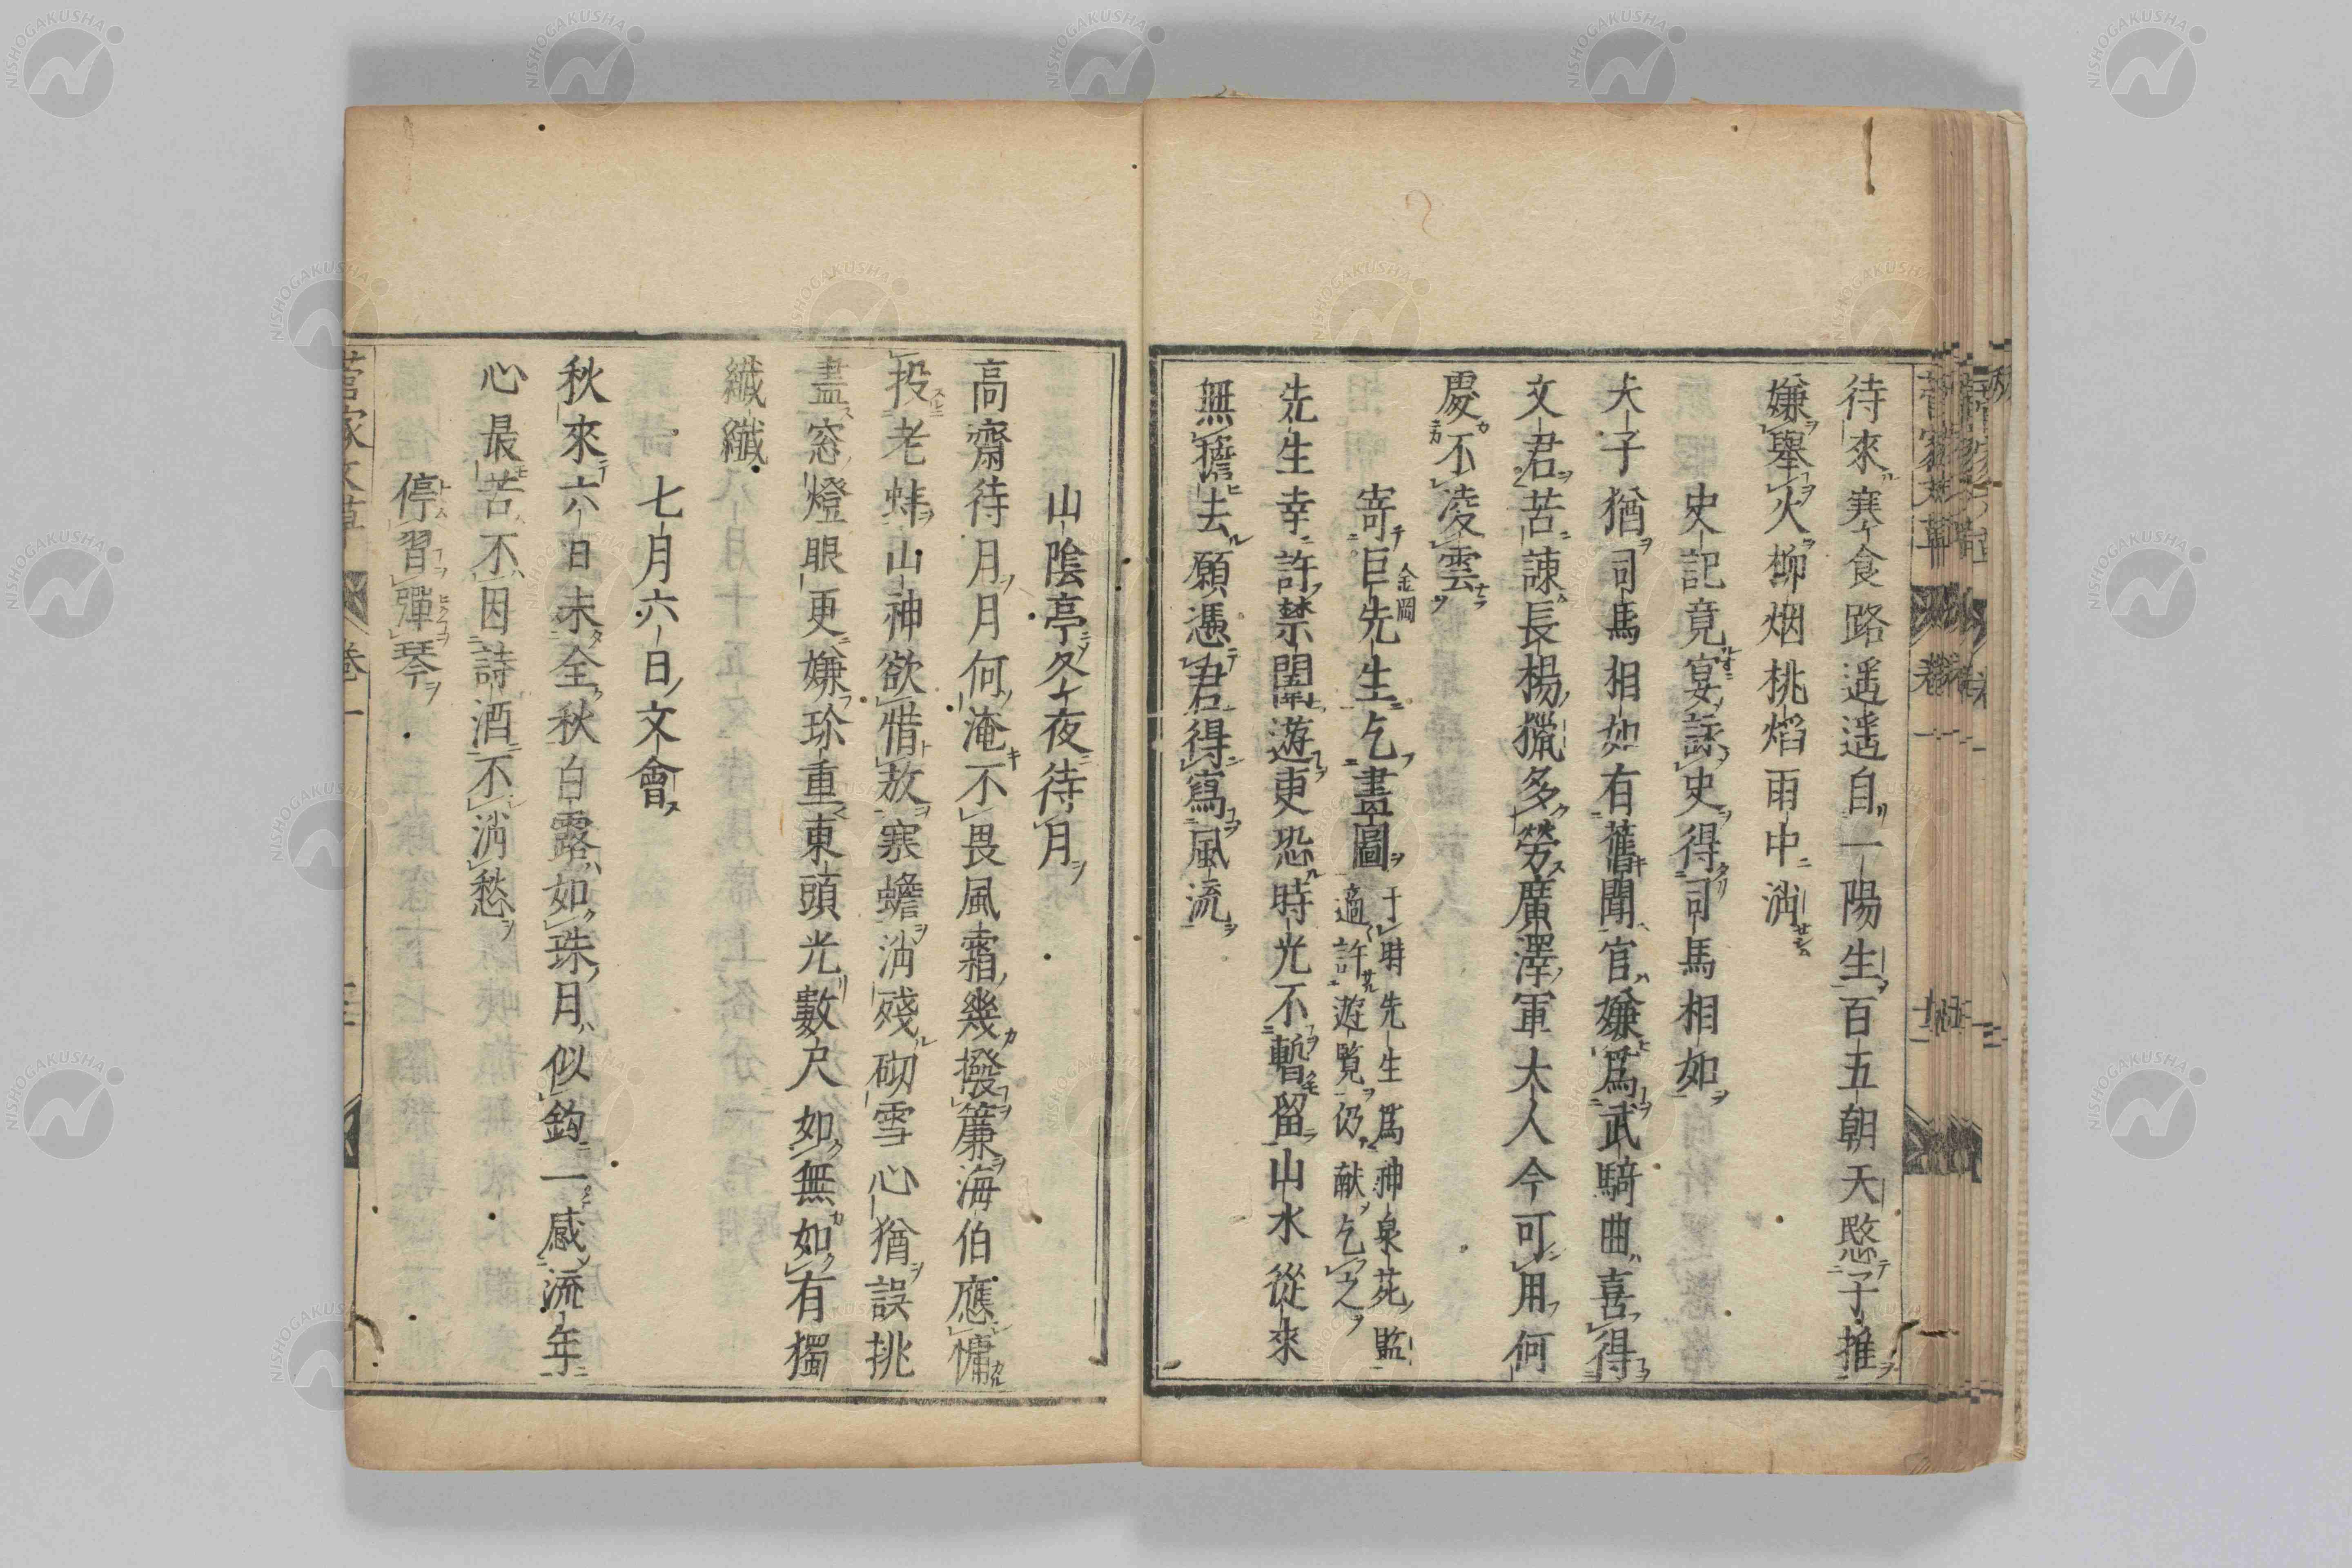 待來寒食路遥遥自一陽生百五朝天愍子推
嫌舉火柳烟桃焰雨中消
史記竟宴詠史得司馬相如
犬子猶司馬相如有舊聞官嫌爲武騎曲喜得
文君苦諌長楊獵多勞廣澤軍大人今可用何
處不凌雲
寄巨先生乞畫圖
金岡
于時先生爲神泉苑監
適許遊覧仍献乞之
先生幸許禁闈遊更恐時光不暫留山水從來
無擔去願憑君得寫風流
山陰亭冬夜待月
高齋待月月何淹不畏風霜幾撥簾海伯應慵
投老蚌山神欲惜放寒蟾消殘砌雪心猶誤挑
盡窓燈眼更嫌珎重東頭光數尺如無如有獨
纖纖
七月六日文會
秋來六日未全秋白露如珠月似鈎一感流年
心最苦不因詩酒不消愁
停習彈琴
菅家文草
卷一
NISHOGAKUSHA